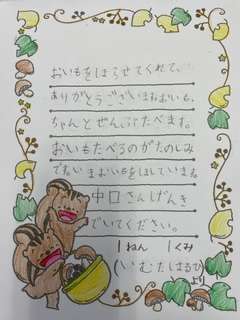 おいもをほらせてくれて、
ありがとうございまねおいも、
ちゃんとぜんぶたべます。
おいもたべるのがたのしみ
でねいまおいもをほしていまね
中口さんげんき
でいてください。
1ねん 1くみ
(いむたはるひ)
より